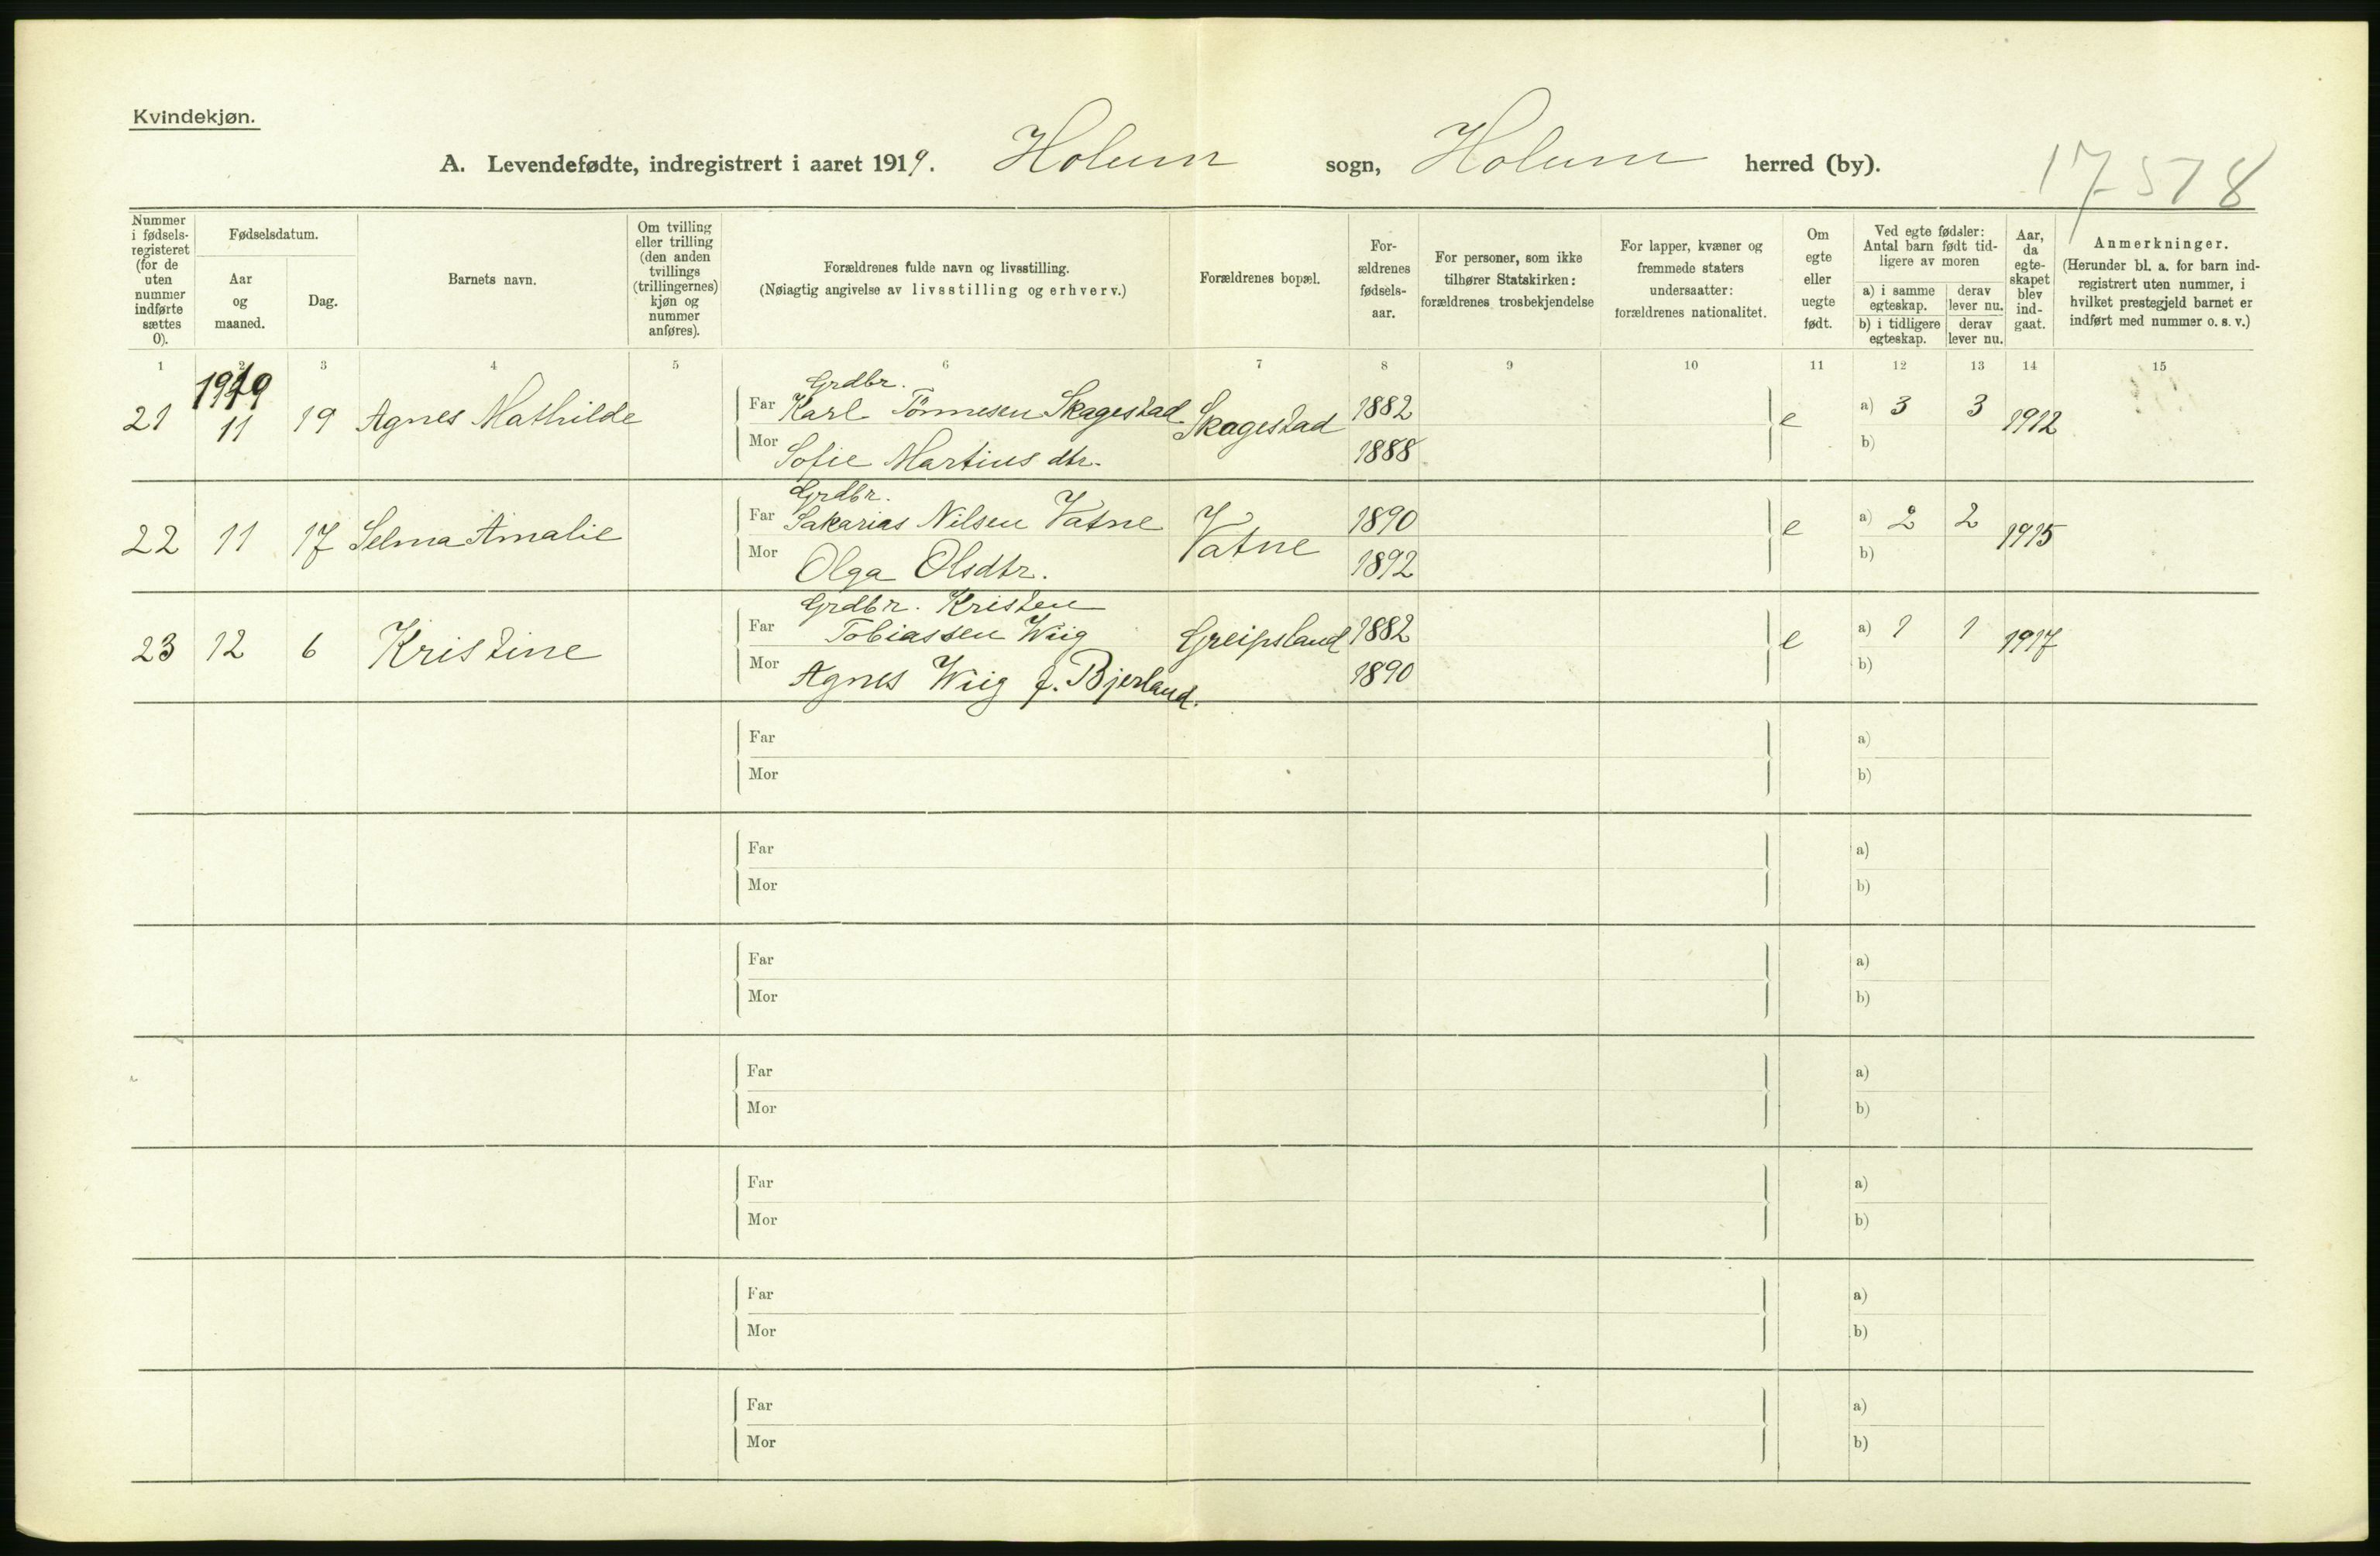 Kvindekjøn.
A. Levendefødte, indregistrert i aaret 1919. Holum sogn, Holum herred (by).
17 578
Nummer i fødsels-registeret (for de uten nummer indførte sættes 0).
Fødselsdatum.
Aar og maaned.
Dag.
Barnets navn.
Om tvilling eller trilling (den anden tvillings (trillingernes) kjøn og nummer anføres).
Forældrenes fulde navn og livsstilling.
(Nøiagtig angivelse av livsstilling og erhverv.)
Forældrenes bopæl.
For-ældrenes fødsels-aar.
For personer, som ikke tilhører Statskirken: forældrenes trosbekjendelse
For lapper, kvæner og fremmede staters undersaatter: forældrenes nationalitet.
Om egte eller uegte født.
Ved egte fødsler: Antal barn født tid-ligere av moren
a) i samme egteskap.
derav lever nu.
b) i tidligere egteskap.
derav lever nu.
Aar, da egte-skapet blev ind-gaat.
Anmerkninger.
(Herunder bl. a. for barn ind-registrert uten nummer, i hvilket prestegjeld barnet er indført med nummer o. s. v.)
1 2 3 4 5 6 7 8 9 10 11 12 13 14 15
1919
Grdbr.
21 11 19 Agnes Mathilde Far Karl Tönnesen Skagestad Skagestad 1882 e a) 3 3 1912
Mor Sofie Martius dtr. 1888 b)
Grdbr.
22 11 17 Selma Amalie Far Sakarias Nilsen Vatne Vatne 1890 e a) 2 2 1915
Mor Olga Olsdtr. 1892 b)
Grdbr. Kristen
23 12 6 Kristine Far Tobiassen Wiig Greipsland 1882 e a) 1 1 1917
Mor Agnes Wiig f. Bjerland. 1890 b)
Far a)
Mor b)
Far a)
Mor b)
Far a)
Mor b)
Far a)
Mor b)
Far a)
Mor b)
Far a)
Mor b)
Far a)
Mor b)